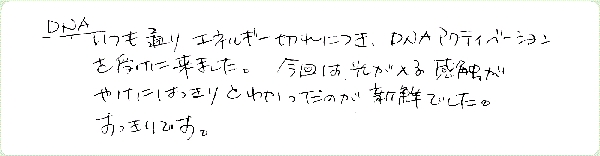 DNA
いつも通りエネルギー切れにつき、DNAアクティベーション
を受けに来ました。今回は、光が入る感触が
やけにはっきりとわかったのが新鮮でした。
すっきりです。